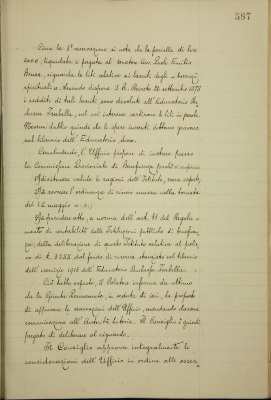 387
Circa la 3ª osservazione si nota che la parcella di lire
2000, liquidata e pagata al senatore Avv. Paolo Emilio
Bensa, riguarda le liti relative ai lasciti degli esercizi
spirituali. Avendo disposto il R. Decreto 26 settembre 1875
i redditi di tali lasciti sono devoluti all'Educatorio Pu
chessa Isabella, nel cui interesse verterono le liti in parola.
Nessun dubbio quindi che le spese inerenti debbano gravare
sul bilancio dell'Educatorio stesso.
Concludendo, l'Ufficio propone di insistere presso
la Commissione Provinciale di Beneficenza perchè
di revocare l'ordinanza di rinvio emessa nella tornata
del 12 maggio u. s.;
di prendere atto, a norma dell'art. 51 del Regola
mento di contabilità delle Istituzioni pubbliche di beneficen
za, della deliberazione di questo Istituto relativa al prelie
vo di £ 3255 dal fondo di riserva stanziato nel bilancio
dell'esercizio 1915 dell'Educatorio Duchessa Isabella.
Ciò tutto esposto, il Relatore informa da ultimo
che la Giunta Permanente, in seduta di ieri, ha proposto
di approvare le osservazioni dell'Ufficio, mandando darsene
comunicazione all'Autorità tutoria. Il Consiglio è quindi
pregato di deliberare al riguardo.
Il Consiglio approva integralmente le
considerazioni dell'Ufficio in ordine alle osser